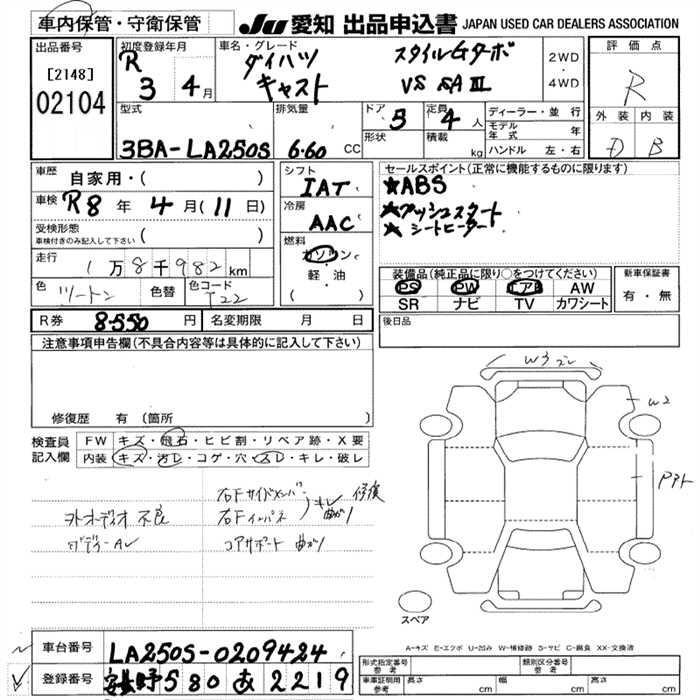 車内保管・守衛保管
JU 愛知 出品申込書 JAPAN USED CAR DEALERS ASSOCIATION
出品番号
[2148]
02104
初度登録年月
R 3 4月
車名・グレード
ダイハツ スタイルGターボ
キャスト VS SAⅢ
2WD
・
4WD
評価点
R
外装 内装
D B
型式
3BA-LA250S
排気量
6.60 CC
ドア 5
形状
定員 4 人
積載 kg
ディーラー・並行
モデル年式 年
ハンドル 左・右
車歴 自家用・( )
車検 R8 年 4 月(11 日)
受検形態
車検付きのみ記入して下さい ( )
走行 1万8千982 km
色 ツートン 色替 色コード T22
シフト
IAT
冷房
AAC
燃料
ガソリン
・
軽・油
( )
セールスポイント(正常に機能するものに限ります)
★ABS
★プッシュスタート
★シートヒーター
装備品(純正品に限り○をつけてください)
PS PW エアB AW
SR ナビ TV カワシート
新車保証書
有・無
R券 8.550 円 名変期限 月 日
後日品
注意事項申告欄(不具合内容等は具体的に記入して下さい)
修復歴 有(箇所
検査員
記入欄
FW キズ・飛石・ヒビ割・リペア跡・X要
内装 キズ・汚レ・コゲ・穴・スレ・キレ・破レ
右Fサイドメンバー
右Fインパネ
修復
曲がり
外オーディオ不良
コアサポート 曲がり
W3
W2
スペア
A-キズ E-エクボ U-凹み W-補修跡 S-サビ C-腐食 XX-交換済
車台番号 LA250S-0209424
登録番号 長野 580 あ 2219
形式指定番号
参考
類別区分番号
参考
車庫証明用
参考
長さ cm 幅 cm 高さ cm